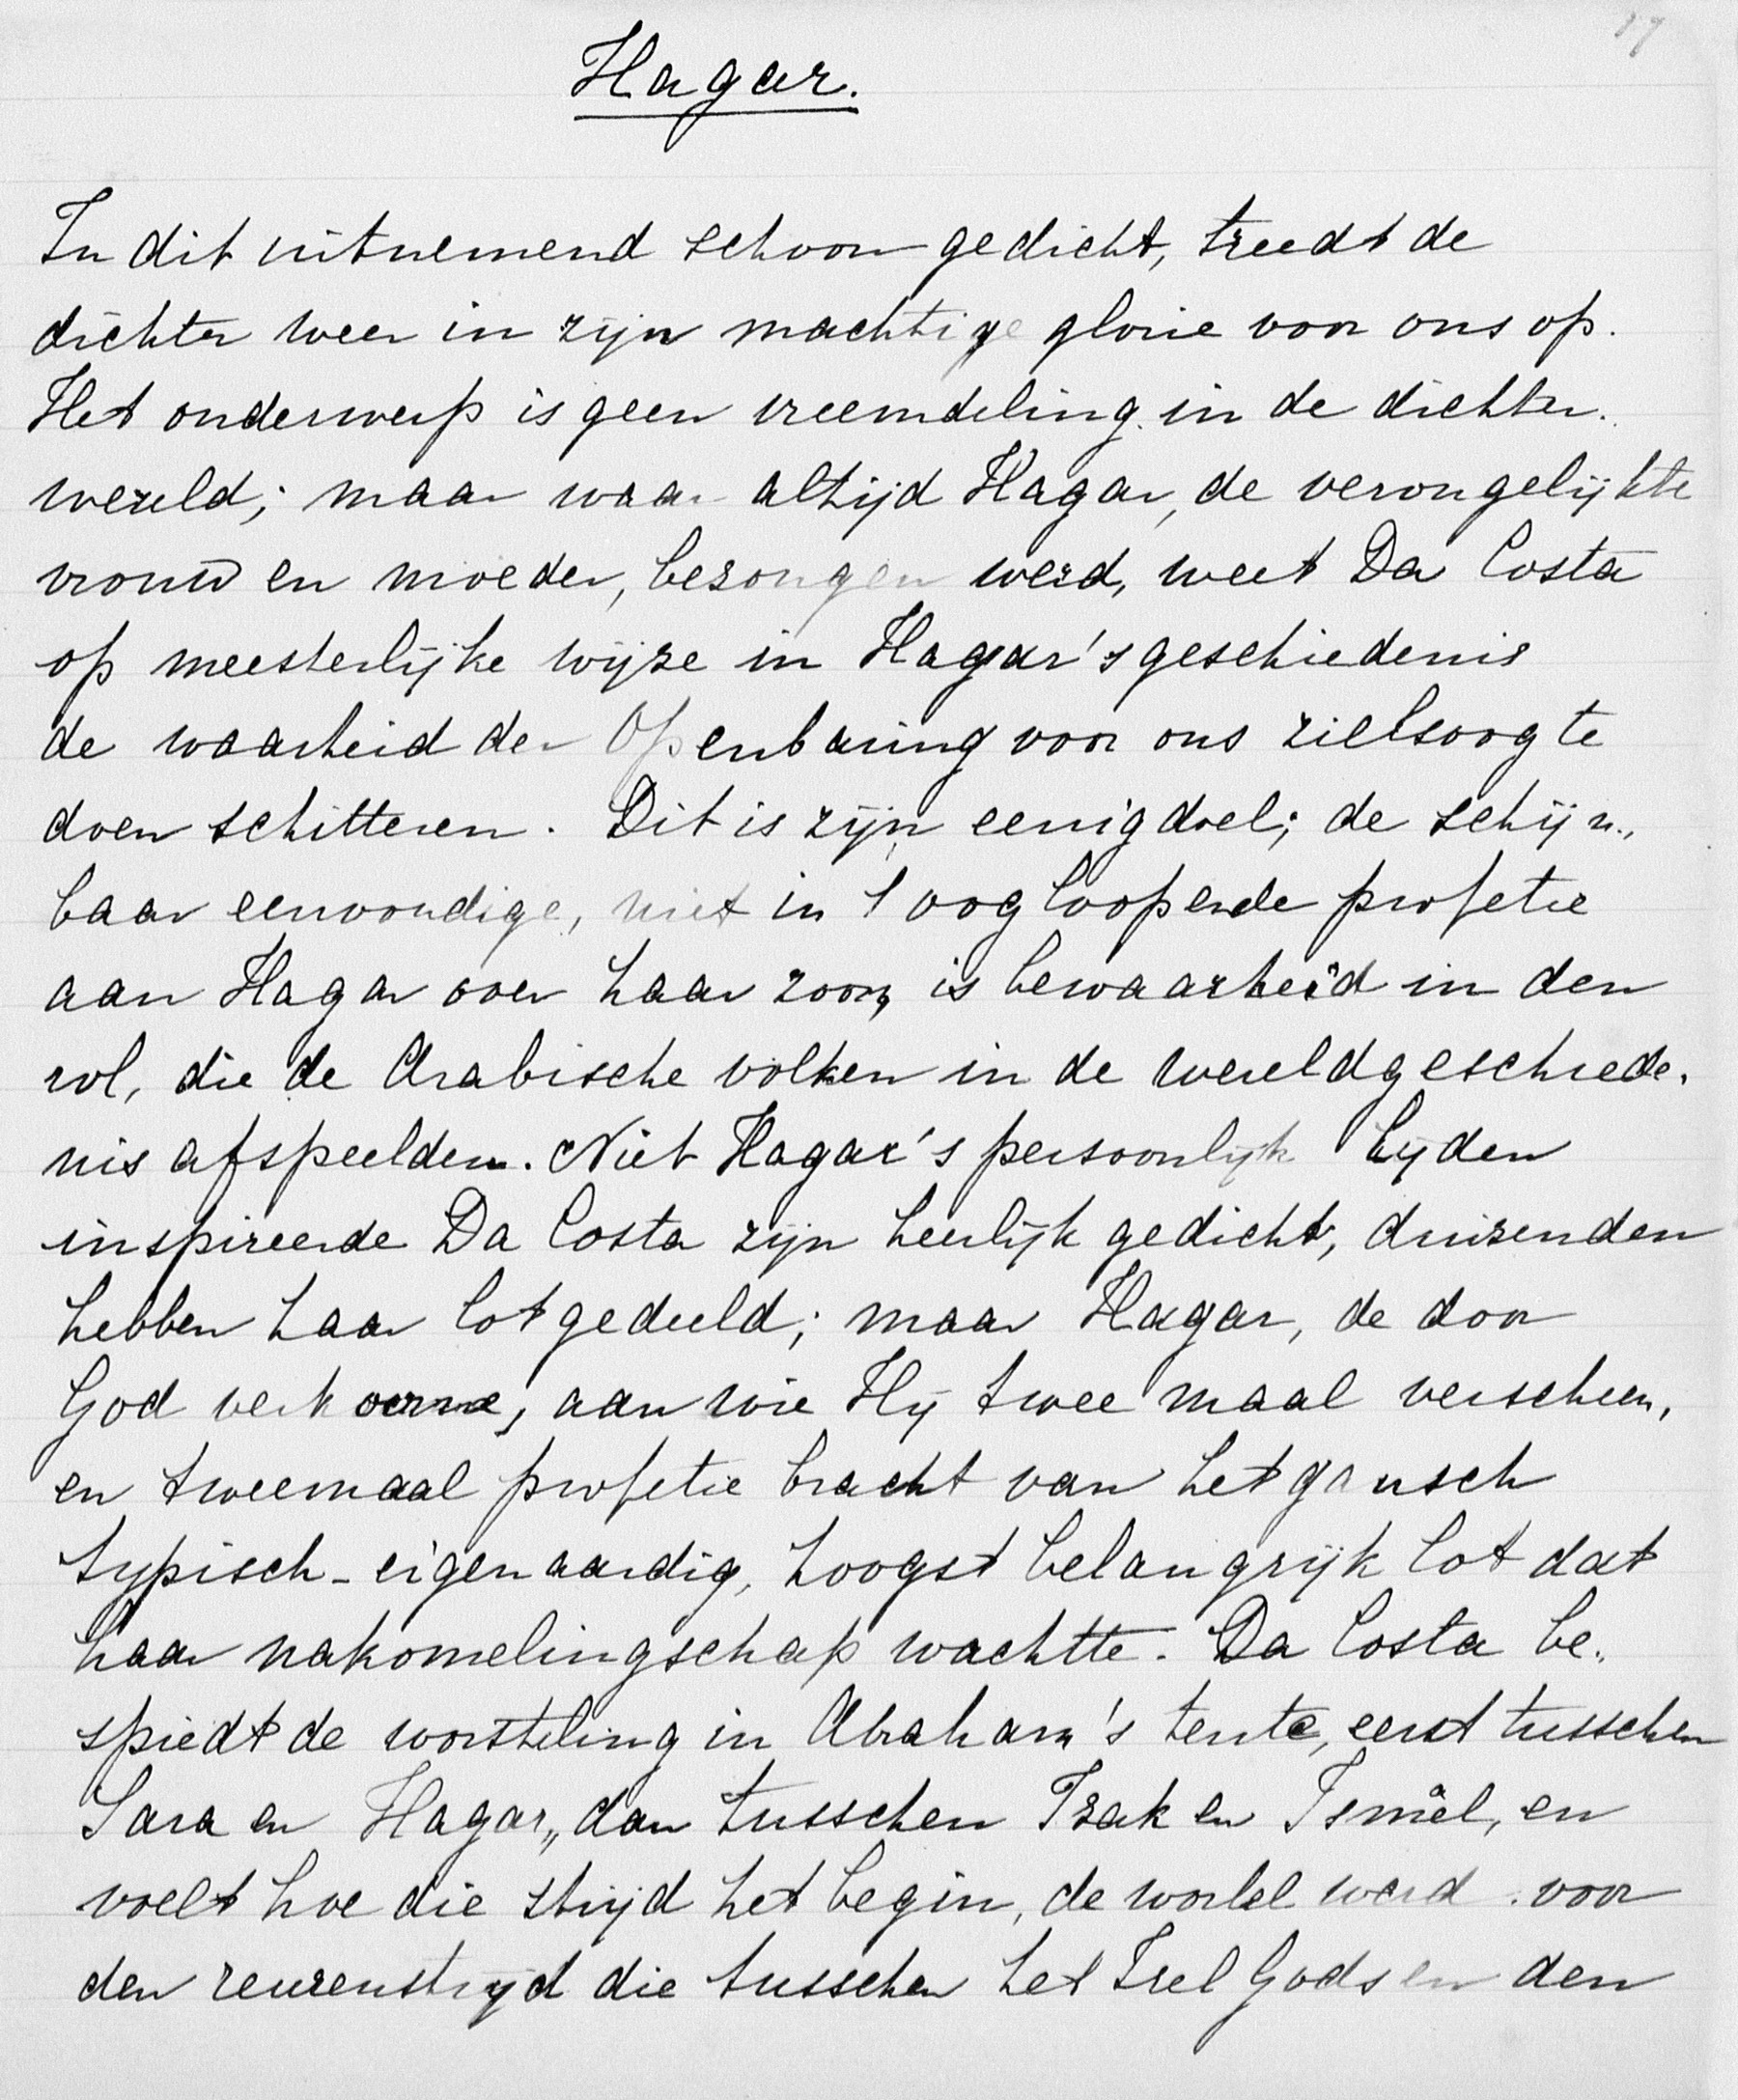 17
Hagar.
In dit uitnemend schoon gedicht, treedt de
dichter weer in zijn machtige glorie voor ons op.
Het onderwerp is geen vreemdeling in de dichter-
wereld; maar waar altijd Hagar, de verongelijkte
vrouw en moeder, bezongen werd, weet Da Costa
op meesterlijke wijze in Hagar's geschiedenis
de waarheid der Openbaring voor ons zielsoog te
doen schitteren. Dit is zijn eenig doel; de schijn-
baar eenvoudige, niet in 't oog loopende profetie
aan Hagar over haar zoon, is bewaarheid in den
rol, die de Arabische volken in de wereldgeschiede-
nis afspeelden. Niet Hagar's persoonlijk lijden
inspireerde Da Costa zijn heerlijk gedicht, duizenden
hebben haar lot gedeeld; maar Hagar, de door
God verkoorne, aan wie Hij twee maal verscheen,
en tweemaal profetie bracht van het gansch
typisch-eigenaardig, hoogst belangrijk lot dat
haar nakomelingschap wachtte. Da Costa be-
spiedt de worsteling in Abraham's tente, eerst tusschen
Sara en Hagar, dan tusschen Izak en Ismaël, en
voelt hoe die strijd het begin, de wortel werd voor
den reuzenstrijd die tusschen het Isrel Gods en den